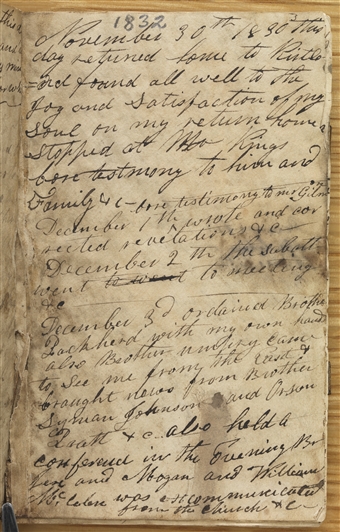 1832
November 30th 1830 this
day returned home to Kirtl
=and found all well to the
Joy and satisfaction of my
soul on my return home
stopped at Mr Kings
bore testmony to him and
Family &c— bore testimony to
December 1th wrote and cor
rected revelations &c
December 2th the sabath
went to went to meeting
&c
December 3d ordained Brother
Packherd with my own hand
also Brother umfiry came
to see me from the East &
braught news from Brother
Lyman Johnson and Orson
Pratt &c also held a
conference in the Evening Br
and Mogan and William
Mc Celen was excommunicated
from the church &c—